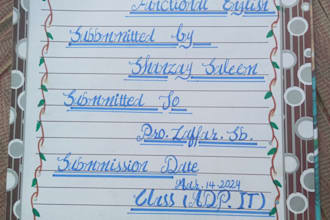 Functional English
Submitted by
Sharzay Saleen
Submitted To
Pro. Zaffar. Sb.
Submission Date
Mar. 14-2024
Class (ADP IT)